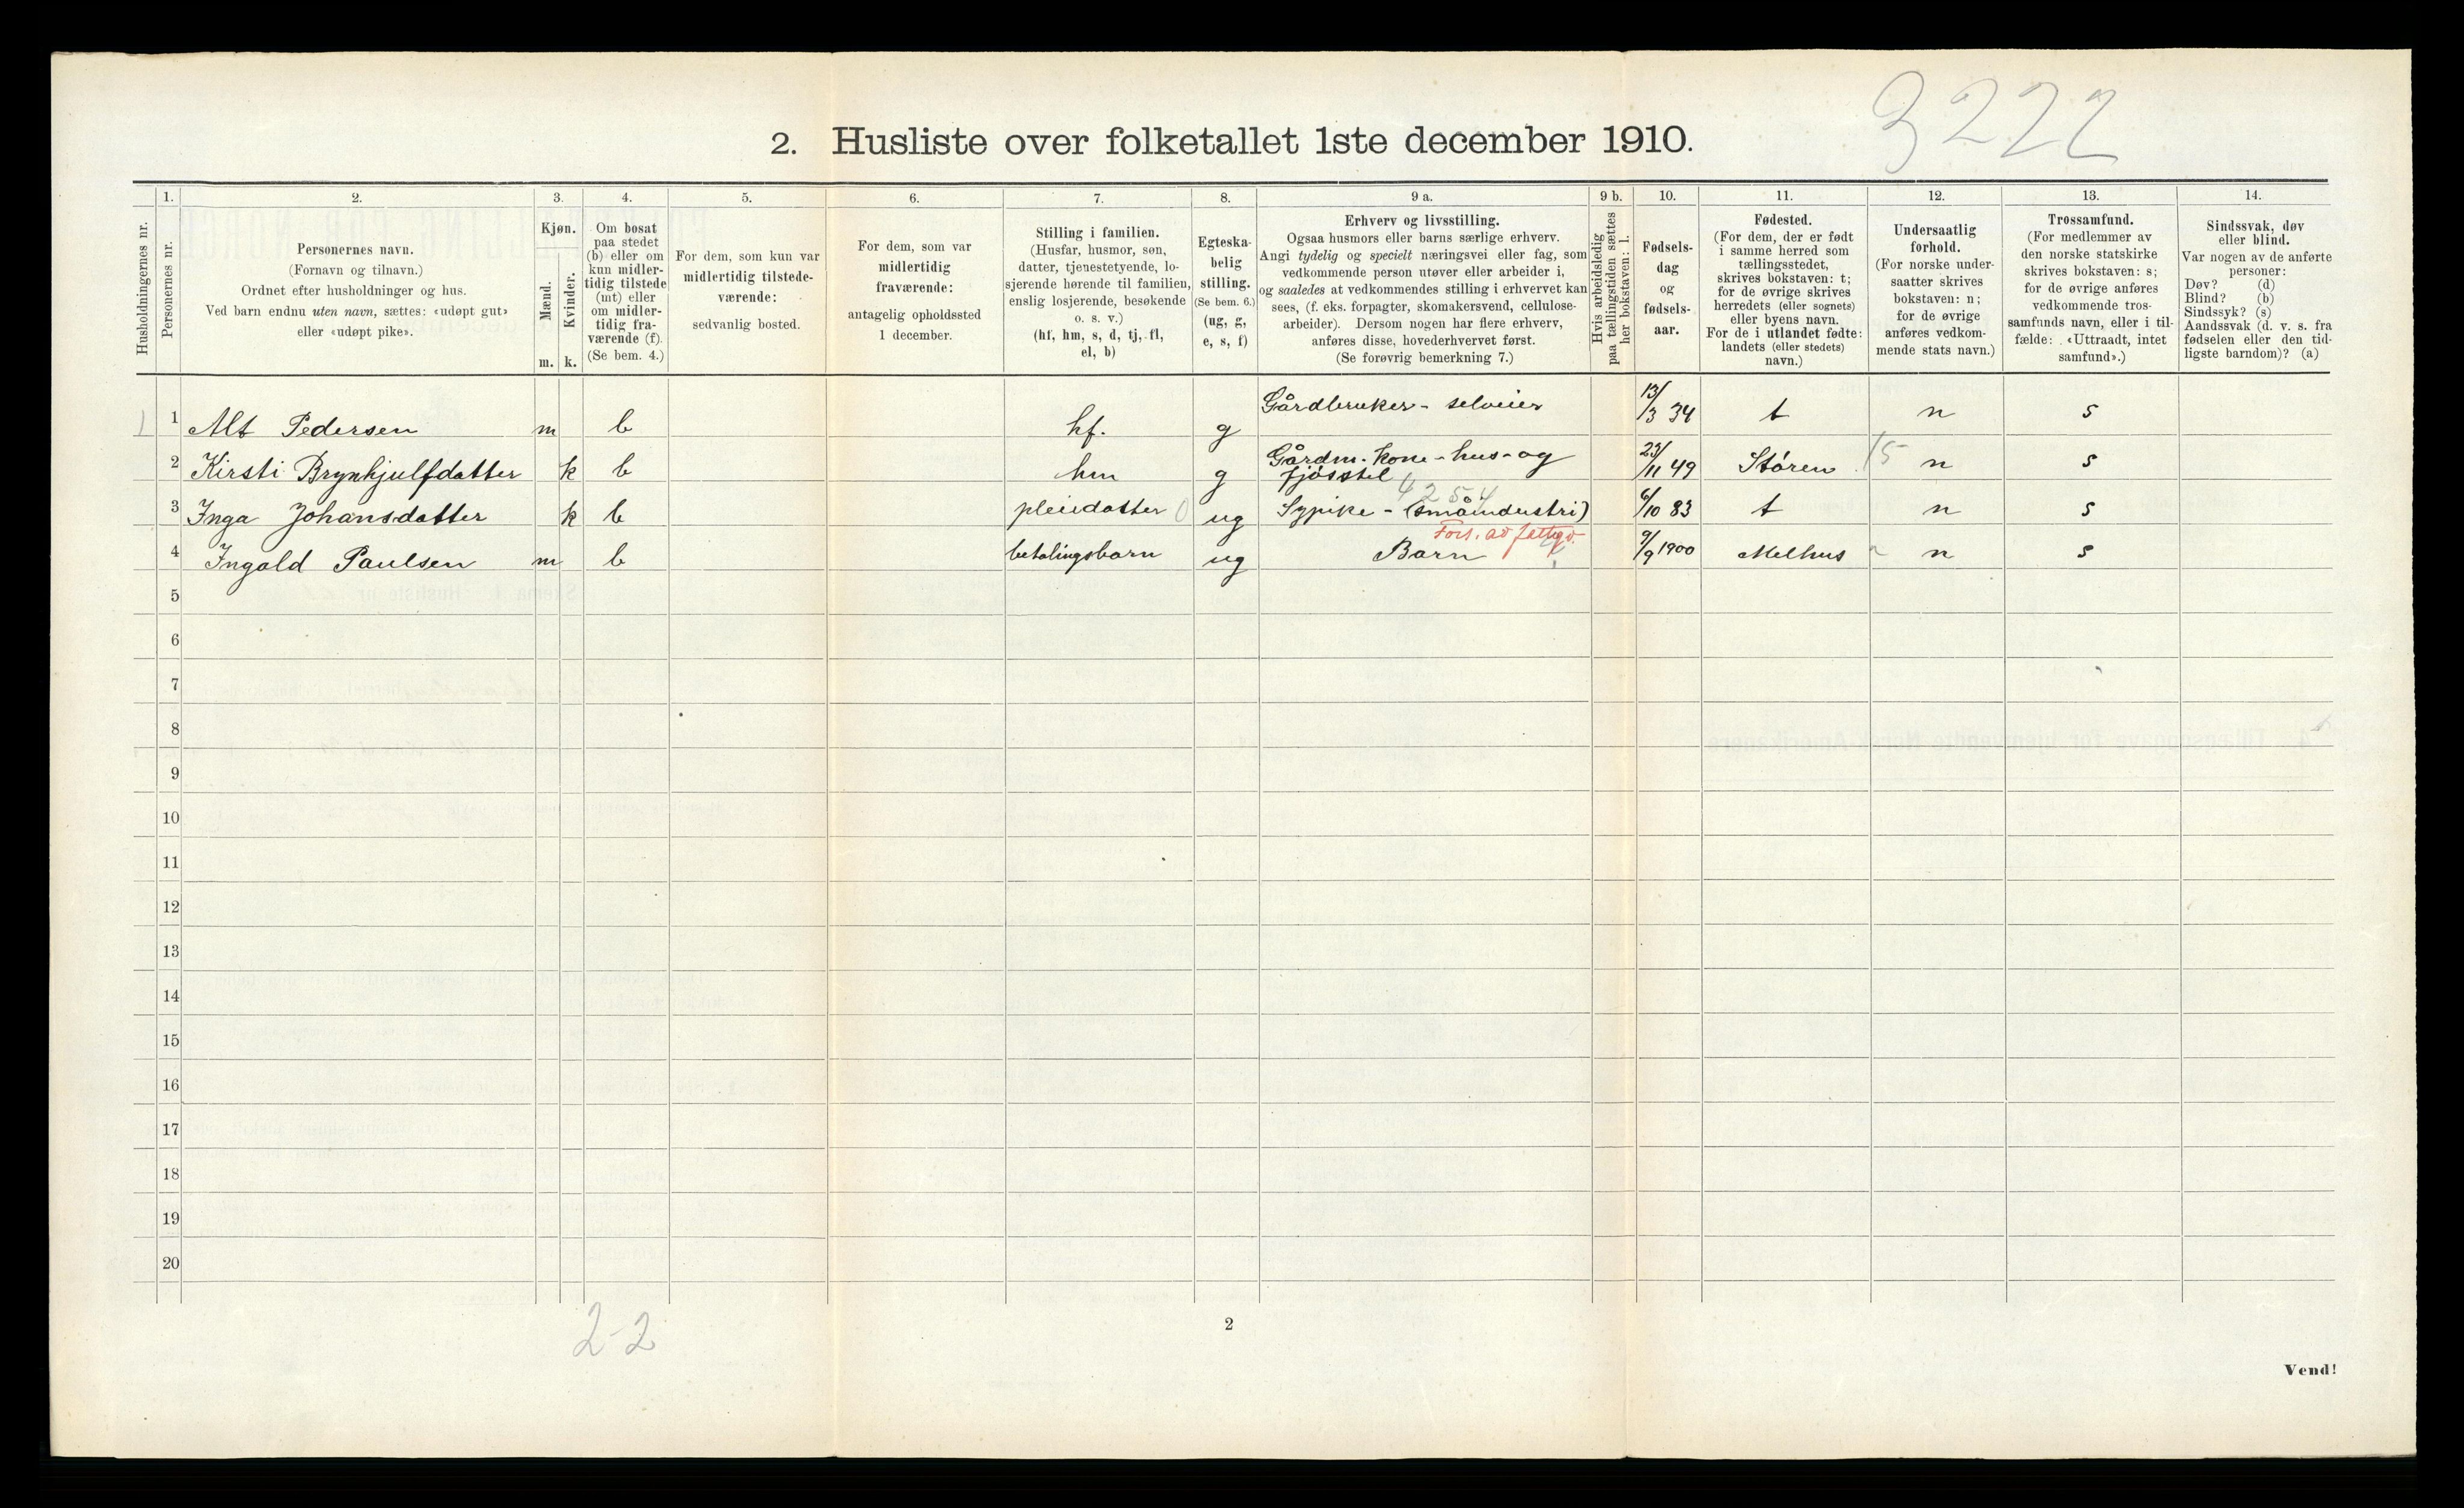 3222
2. Husliste over folketallet 1ste december 1910.
Husholdningernes nr.
1.
Personernes nr.
2.
Personernes navn.
(Fornavn og tilnavn.)
Ordnet efter husholdninger og hus.
Ved barn endnu uten navn, sættes: «udøpt gut»
eller «udøpt pike».
3.
Kjøn.
Mænd.
Kvinder.
m. k.
4.
Om bosat
paa stedet
(b) eller om
kun midler-
tidig tilstede
(mt) eller
om midler-
tidig fra-
værende (f).
(Se bem. 4.)
5.
For dem, som kun var
midlertidig tilstede-
værende:
sedvanlig bosted.
6.
For dem, som var
midlertidig
fraværende:
antagelig opholdssted
1 december.
7.
Stilling i familien.
(Husfar, husmor, søn,
datter, tjenestetyende, lo-
sjerende hørende til familien,
enslig losjerende, besøkende
o. s. v.)
(hf, hm, s, d, tj, fl,
el, b)
8.
Egteska-
belig
stilling.
(Se bem. 6.)
(ug, g,
e, s, f)
9 a.
Erhverv og livsstilling.
Ogsaa husmors eller barns særlige erhverv.
Angi tydelig og specielt næringsvei eller fag, som
vedkommende person utøver eller arbeider i,
og saaledes at vedkommendes stilling i erhvervet kan
sees, (f. eks. forpagter, skomakersvend, cellulose-
arbeider). Dersom nogen har flere erhverv,
anføres disse, hovederhvervet først.
(Se forøvrig bemerkning 7.)
9 b.
Hvis arbeidsledig
paa tællingstiden sættes
her bokstaven: l.
10.
Fødsels-
dag
og
fødsels-
aar.
11.
Fødested.
(For dem, der er født
i samme herred som
tællingsstedet,
skrives bokstaven: t;
for de øvrige skrives
herredets (eller sognets)
eller byens navn.
For de i utlandet fødte:
landets (eller stedets)
navn.)
12.
Undersaatlig
forhold.
(For norske under-
saatter skrives
bokstaven: n;
for de øvrige
anføres vedkom-
mende stats navn.)
13.
Trossamfund.
(For medlemmer av
den norske statskirke
skrives bokstaven: s;
for de øvrige anføres
vedkommende tros-
samfunds navn, eller i til-
fælde: «Uttraadt, intet
samfund».)
14.
Sindssvak, døv
eller blind.
Var nogen av de anførte
personer:
Døv? (d)
Blind? (b)
Sindssyk? (s)
Aandssvak (d. v. s. fra
fødselen eller den tid-
ligste barndom)? (a)
1 1 Alt Pedersen m b hf. g Gårdbruker - selveier 13/3 34 t n s
2 Kirsti Brynhjulfdatter k b hm g Gårdm. kone - hus- og 23/11 49 Støren 15 n s
fjøsstel
4254
3 Inga Johansdatter k b pleiedatter 0 ug Sypike - (småindustri) 6/10 83 t n s
Fors. av fattigv.
4 Ingald Paulsen m b betalingsbarn ug Barn 9/9 1900 Melhus n s
5
6
7
8
9
10
11
12
13
14
15
16
17
18
19
20
2-2
2
Vend!